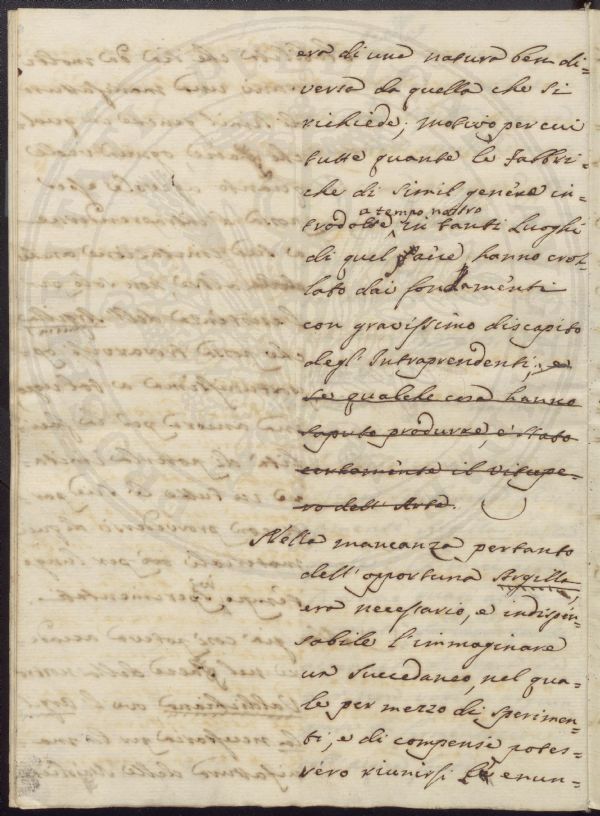 era di una natura ben di-
versa da quella che si
richiede; motivo per cui
tutte quante le Fabbri-
che di simil genere in-
a tempo nostro
trodotte in tanti Luoghi
di quel Paese, hanno crol-
lato dai fondamenti
con gravissimo discapito
degl' Intraprendenti; e
se qualche cosa hanno
saputo produrre, è stato
certamente il vitupe-
ro dell' Arte.
Nella mancanza pertanto
dell' opportuna Argilla
era necessario, e indispen-
sabile l'immaginare
un succedaneo, nel qua-
le per mezzo di sperimen-
ti, e di compensi potes-
sero riunirsi le enun-